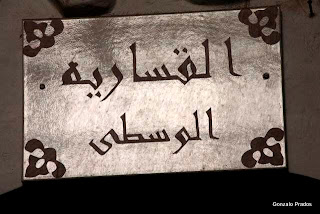 القسارية
الوسطى
Gonzalo Prados